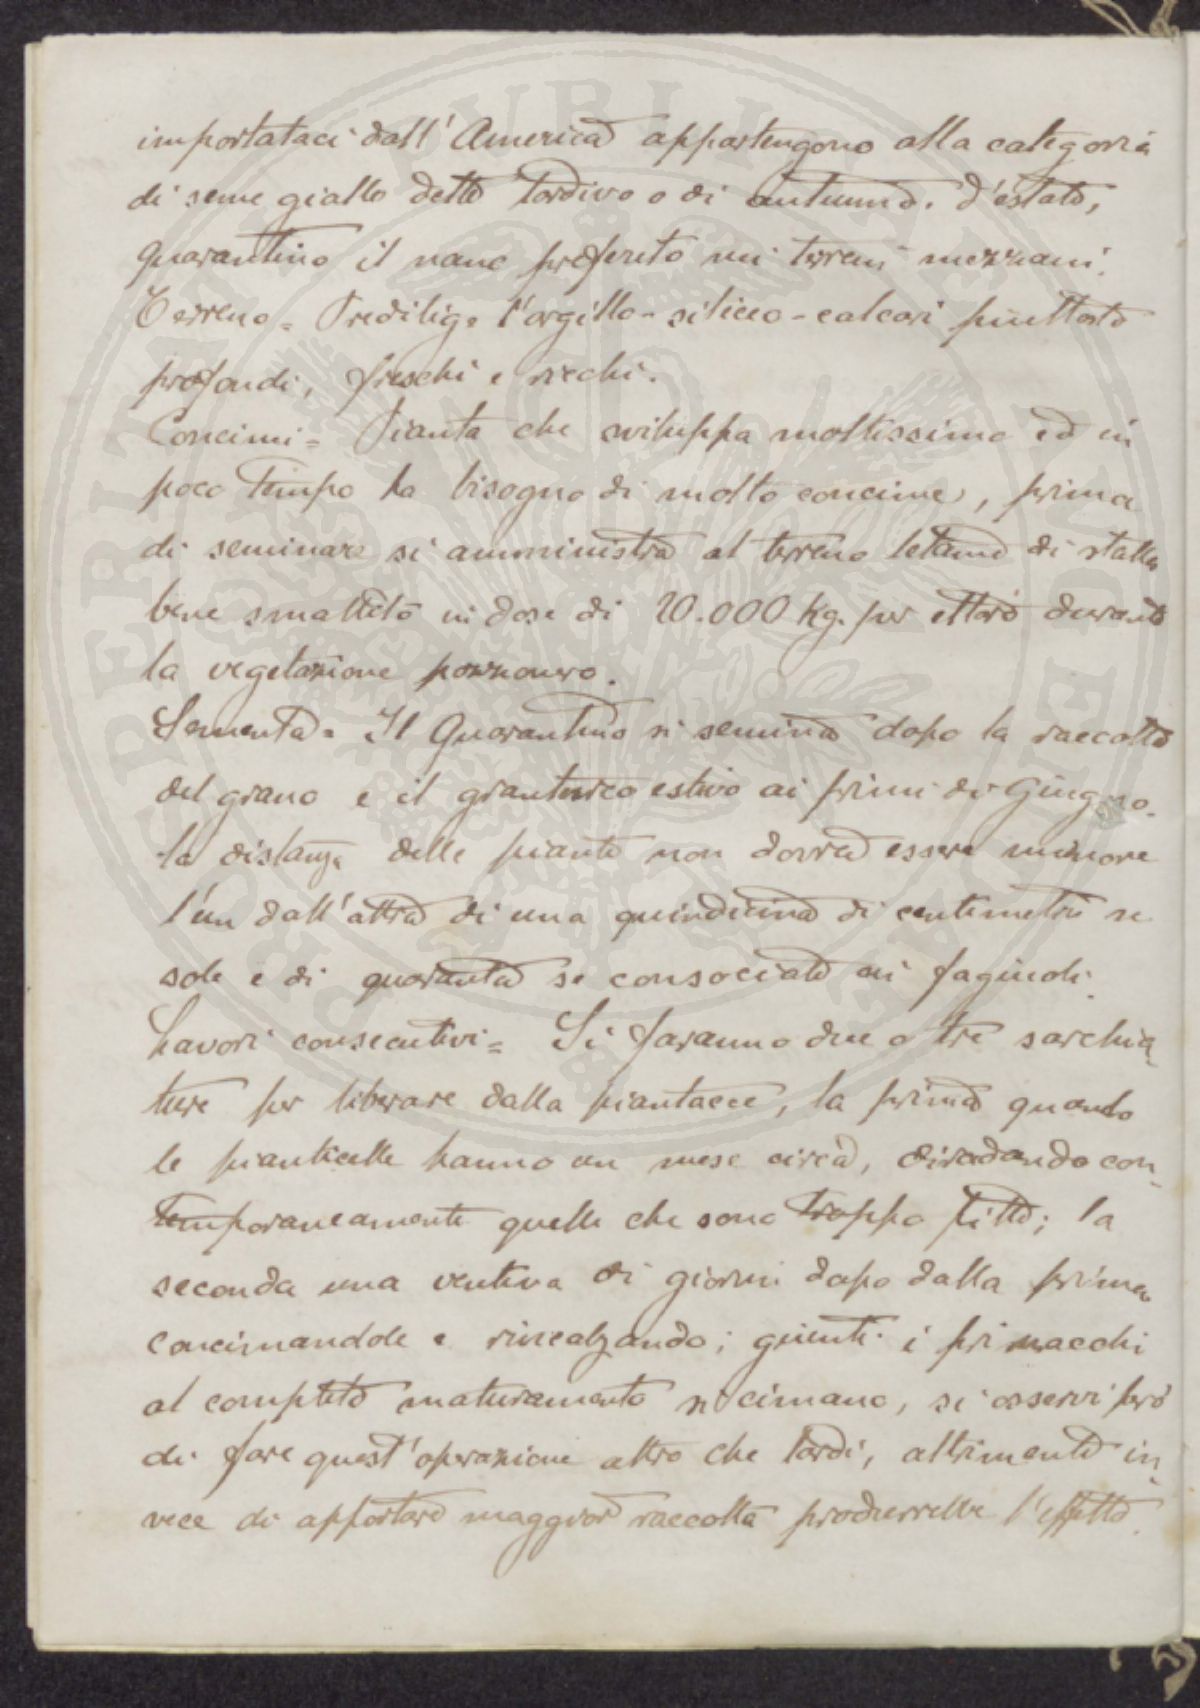 importataci dall'America appartengono alla categoria
di seme giallo detto tardivo o di autunno. d'estate,
quarantino il nano preferito nei terreni mezzani.
Terreno = Predilige l'argillo-siliceo-calcari piuttosto
profondi, freschi e ricchi.
Concimi = Pianta che sviluppa moltissimo ed in
poco tempo ha bisogno di molto concime, prima
di seminare si amministra al terreno letame di stalla
bene smaltito in dose di 20.000 Kg. per ettaro durante
la vegetazione pozzonero.
Sementa = Il Quarantino si semina dopo la raccolta
del grano e il granturco estivo ai primi di Giugno.
la distanza delle piante non dovrà essere minore
l'un dall'altra di una quindicina di centimetri se
sole e di quaranta se consociate ai fagiuoli.
Lavori consecutivi = Si faranno due o tre sarchia-
ture per liberare dalla piantacce, la prima quando
le pianticelle hanno un mese circa, diradando con-
temporaneamente quelle che sono troppo fitte; la
seconda una ventina di giorni dopo dalla prima
concimandole e rincalzando; giunti i pennacchi
al completo maturamento si cimano, si osservi però
di fare quest'operazione altro che tardi, altrimenti in-
vece di apportare maggior raccolta produrrebbe l'effetto
PUBLICE
PROSPERITATI
AUGENDAE